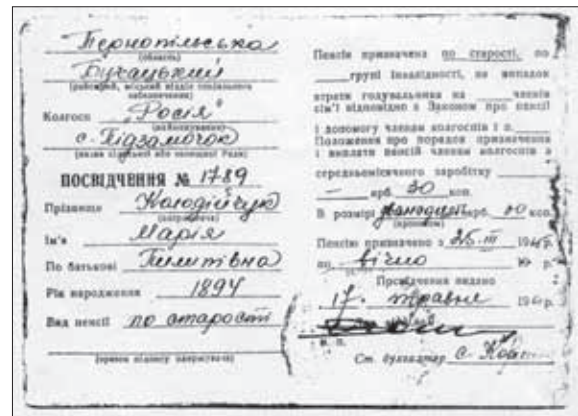 Тернопільська
(область)
Бучацький
(районний, міський відділ соціального забезпечення)
Колгосп „Росія"
(найменування)
с. Підзамочок
(назва сільської або селищної Ради)
ПОСВІДЧЕННЯ № 1789
Прізвище Колодійчук
Ім'я Марія
По батькові Пилипівна
Рік народження 1894
Вид пенсії по старості
(зразок підпису одержувача)
Пенсія призначена по старості, по
групі інвалідності, на випадок
втрати годувальника на членів
сім'ї відповідно з Законом про пенсії
і допомогу членам колгоспів і п.
Положення про порядок призначення
і виплати пенсій членам колгоспів з
середньомісячного заробітку
— крб. 30 коп.
В розмірі крб. 00 коп.
(прописом)
Пенсію призначено з 25.ІІІ 19 р.
по вічно р.
Посвідчення видано
17. травня 19 р.
М. П.
Ст. бухгалтер С.